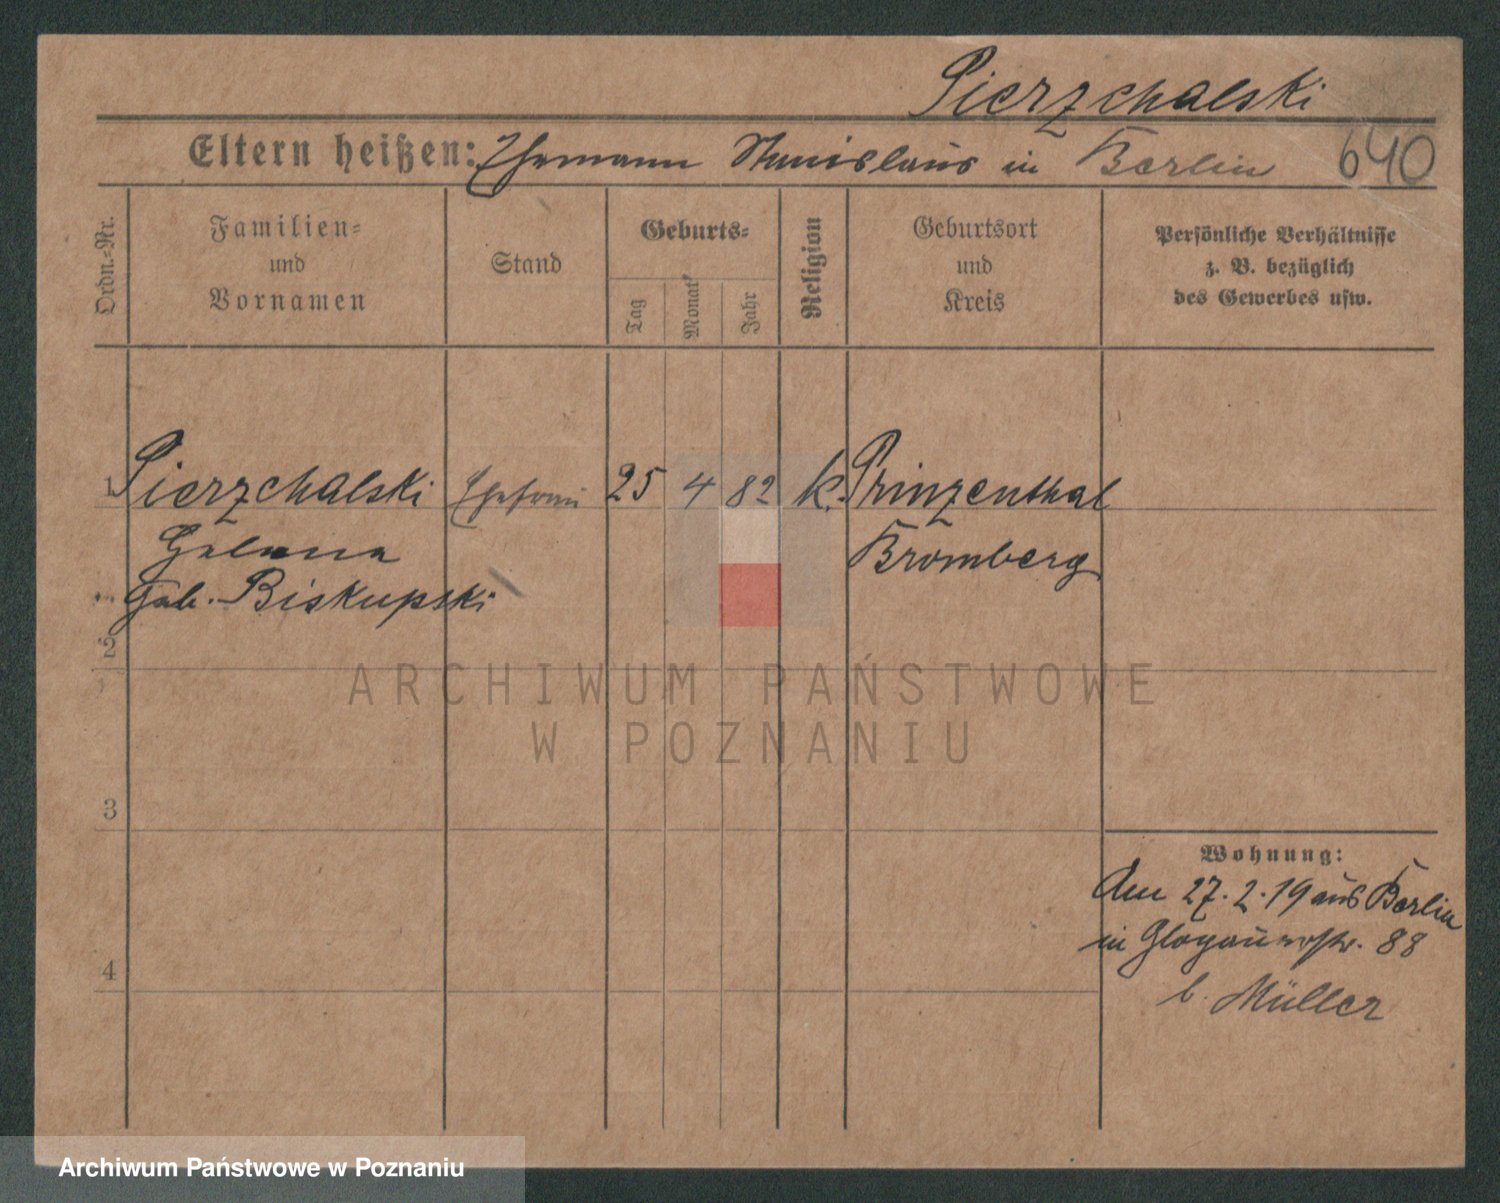 Pierzchalski
Eltern heißen: Ehemann Stanislaus in Berlin 640
Ordn.-Nr.
Familien-
und
Vornamen
Stand
Geburts-
Tag
Monat
Jahr
Religion
Geburtsort
und
Kreis
Persönliche Verhältnisse
z. B. bezüglich
des Gewerbes usw.
1 Pierzchalski Ehefrau 25 4 82 k. Prinzenthal
Helena Bromberg
geb. Biskupski
2
ARCHIWUM PAŃSTWOWE
W POZNANIU
3
Wohnung:
Am 27.2.19 aus Berlin
in Glogauerstr. 88
4
b. Müller
Archiwum Państwowe w Poznaniu